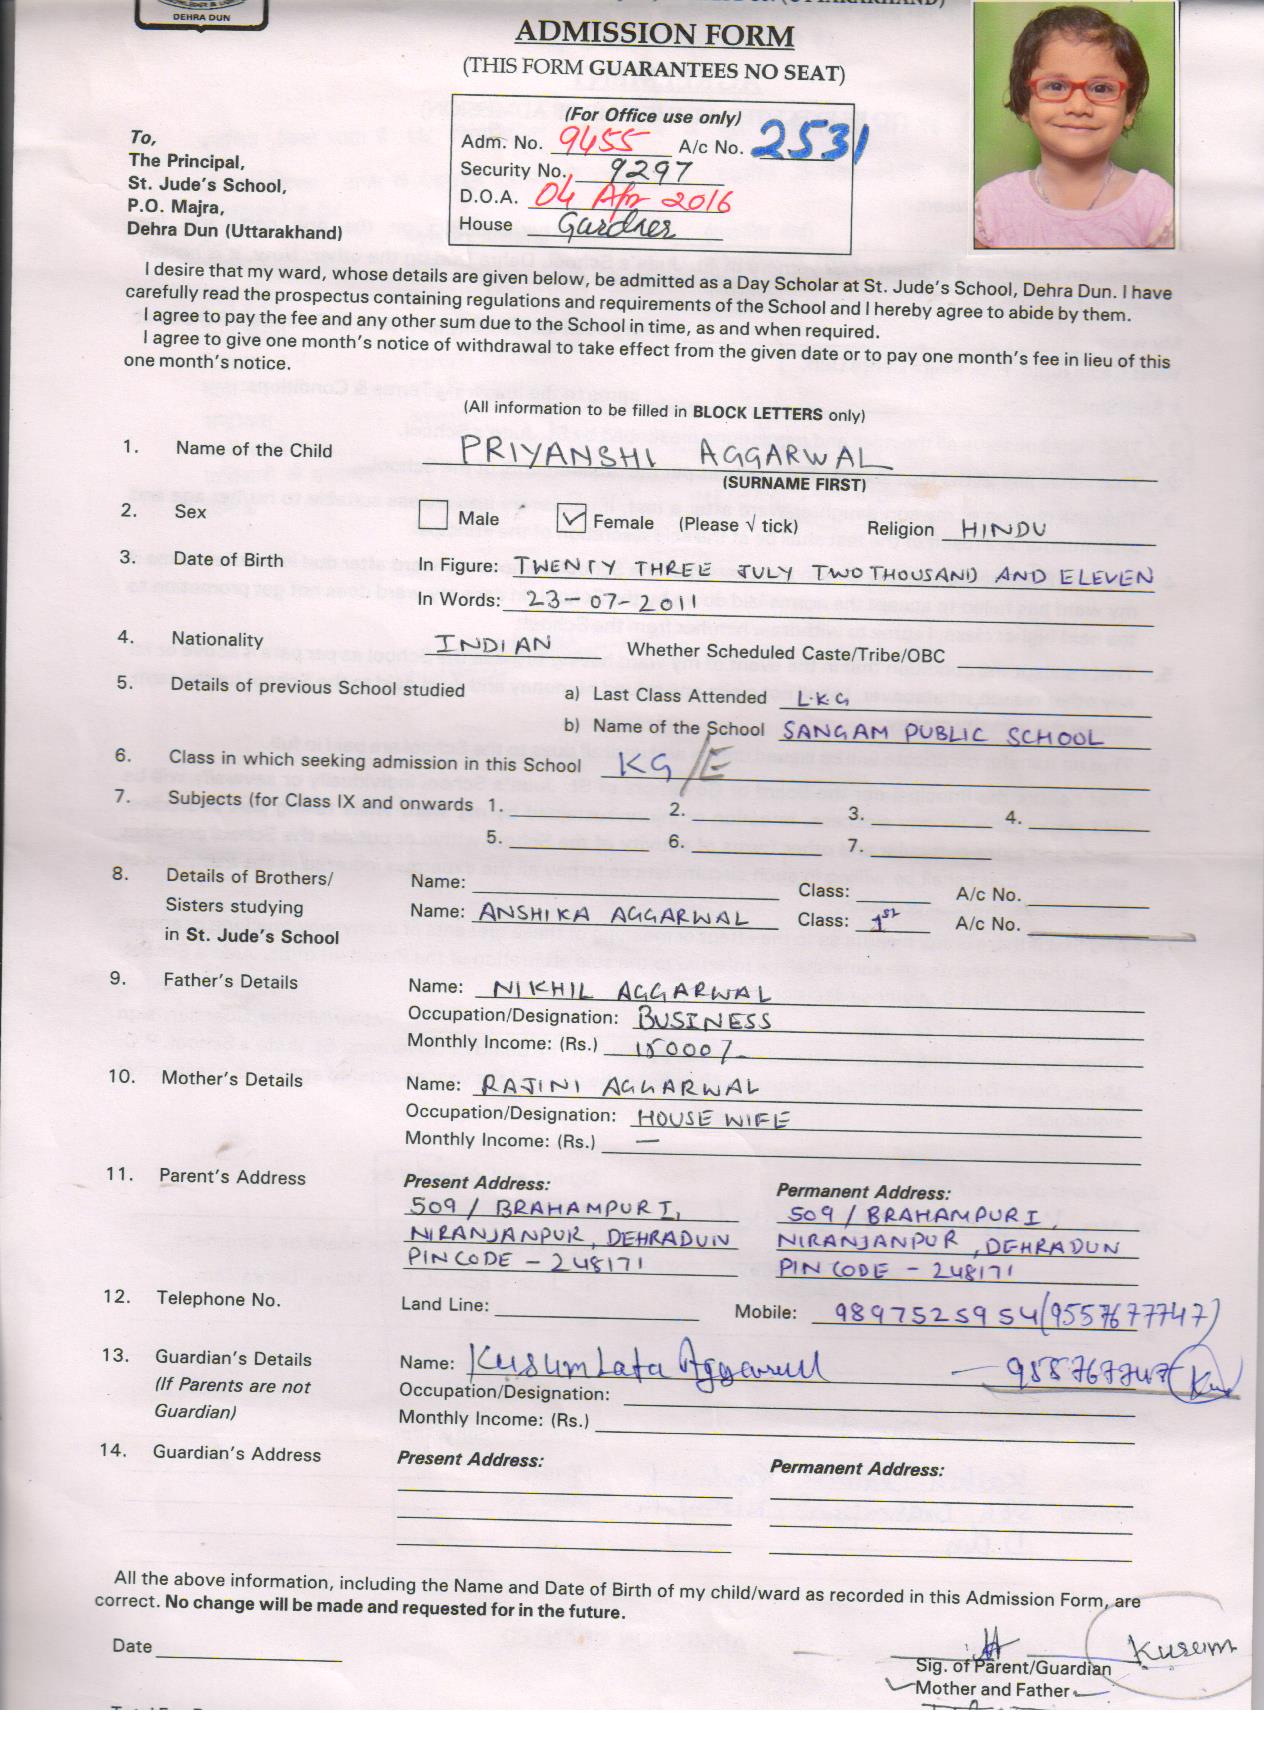 DEHRA DUN
ADMISSION FORM
(THIS FORM GUARANTEES NO SEAT)
(For Office use only)
Adm. No. 9455 A/c No. 2531
Security No. 9297
D.O.A. 04 Apr 2016
House Gardner
To,
The Principal,
St. Jude's School,
P.O. Majra,
Dehra Dun (Uttarakhand)
I desire that my ward, whose details are given below, be admitted as a Day Scholar at St. Jude's School, Dehra Dun. I have
carefully read the prospectus containing regulations and requirements of the School and I hereby agree to abide by them.
I agree to pay the fee and any other sum due to the School in time, as and when required.
I agree to give one month's notice of withdrawal to take effect from the given date or to pay one month's fee in lieu of this
one month's notice.
(All information to be filled in BLOCK LETTERS only)
1. Name of the Child PRIYANSHI AGGARWAL
(SURNAME FIRST)
2. Sex Male Female (Please √ tick) Religion HINDU
3. Date of Birth In Figure: TWENTY THREE JULY TWO THOUSAND AND ELEVEN
In Words: 23-07-2011
4. Nationality INDIAN Whether Scheduled Caste/Tribe/OBC
5. Details of previous School studied a) Last Class Attended L.K.G
b) Name of the School SANGAM PUBLIC SCHOOL
6. Class in which seeking admission in this School KG/E
7. Subjects (for Class IX and onwards 1. 2. 3. 4.
5. 6. 7.
8. Details of Brothers/ Name: Class: A/c No.
Sisters studying Name: ANSHIKA AGGARWAL Class: 1st A/c No.
in St. Jude's School
9. Father's Details Name: NIKHIL AGGARWAL
Occupation/Designation: BUSINESS
Monthly Income: (Rs.) 15000/-
10. Mother's Details Name: RAJINI AGGARWAL
Occupation/Designation: HOUSE WIFE
Monthly Income: (Rs.) —
11. Parent's Address Present Address: Permanent Address:
509 / BRAHAMPURI, 509 / BRAHAMPURI,
NIRANJANPUR, DEHRADUN NIRANJANPUR, DEHRADUN
PIN CODE - 248171 PIN CODE - 248171
12. Telephone No. Land Line: Mobile: 9897525954 (9557677747)
13. Guardian's Details Name: Kusum Lata Aggarwal — 9557677747
(If Parents are not Occupation/Designation:
Guardian) Monthly Income: (Rs.)
14. Guardian's Address Present Address: Permanent Address:
All the above information, including the Name and Date of Birth of my child/ward as recorded in this Admission Form, are
correct. No change will be made and requested for in the future.
Date Kusum
Sig. of Parent/Guardian
Mother and Father